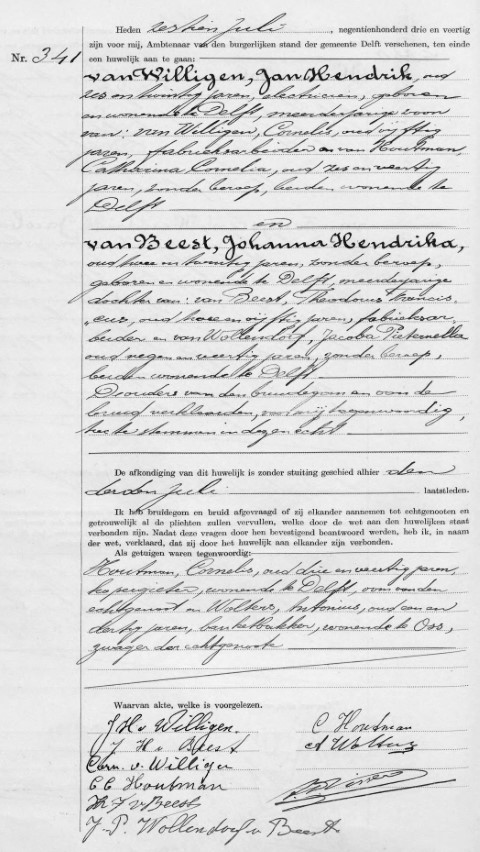 Heden zestien Juli, negentienhonderd drie en veertig
zijn voor mij, Ambtenaar van den burgerlijken stand der gemeente Delft verschenen, ten einde
Nr. 341 een huwelijk aan te gaan:
van Willigen, Jan Hendrik, oud
zes en twintig jaren, electricien, geboren
en wonende te Delft, meerderjarige zoon
van: van Willigen, Cornelis, oud vijftig
jaren, fabrieksarbeider en van Houtman,
Catharina Cornelia, oud zes en veertig
jaren, zonder beroep, beiden wonende te
Delft
en
van Beest, Johanna Hendrika,
oud twee en twintig jaren, zonder beroep,
geboren en wonende te Delft, meerderjarige
dochter van: van Beest, Theodorus Francis-
cus, oud twee en vijftig jaren, fabrieksar-
beider en van Wollendorf, Jacoba Pieternella
oud negen en veertig jaren, zonder beroep,
beiden wonende te Delft.
De ouders van den bruidegom en van de
bruid verklaarden, voor mij tegenwoordig,
toe te stemmen in dezen echt
De afkondiging van dit huwelijk is zonder stuiting geschied alhier den
derden Juli laatstleden.
Ik heb bruidegom en bruid afgevraagd of zij elkander aannemen tot echtgenooten en
getrouwelijk al de plichten zullen vervullen, welke door de wet aan den huwelijken staat
verbonden zijn. Nadat deze vragen door hen bevestigend beantwoord werden, heb ik, in naam
der wet, verklaard, dat zij door het huwelijk aan elkander zijn verbonden.
Als getuigen waren tegenwoordig:
Houtman, Cornelis, oud drie en veertig jaren,
kopergieter, wonende te Delft, oom van den
echtgenoot en Wolters, Antonius, oud een en
dertig jaren, banketbakker, wonende te Oss,
zwager der echtgenoote
Waarvan akte, welke is voorgelezen.
J H v Willigen. C Houtman
J H v Beest A Wolters
Corn. v. Willigen
C C Houtman
Th F v Beest
J. P. Wollendorf v Beest